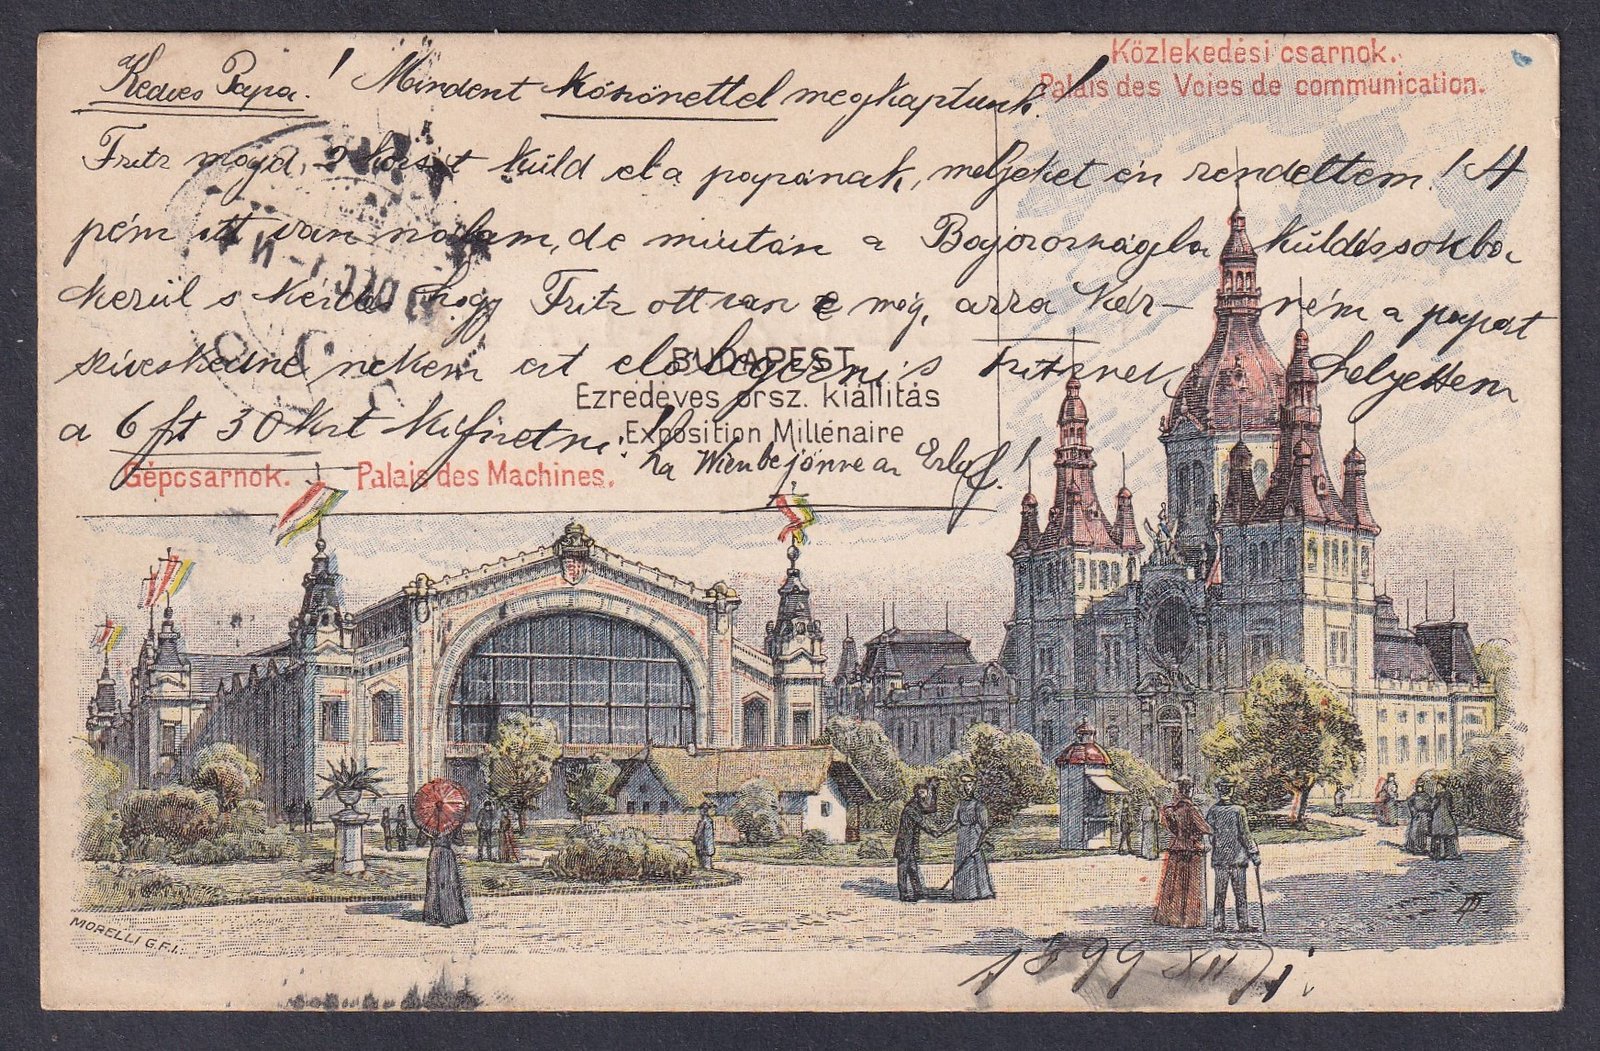 Közlekedési csarnok.
Palais des Voies de communication.
Kedves Papa! Mindent köszönettel megkaptunk!
Fritz majd, 2 küld el a papának, melyeket én rendeltem! A
pém itt van nálam, de miután a Bajorországba
kerül s kérdés hogy Fritz ott van e még, arra kér-ném a papát
szíveskedne nekem azt előlegezni s Fritznek helyettem
a 6 frt 30 krt kifizetni! ha Wienbe jönne az
BUDAPEST
Ezredéves orsz. kiállitás
Exposition Millénaire
Gépcsarnok. Palais des Machines.
MORELLI G.F.I.
1899